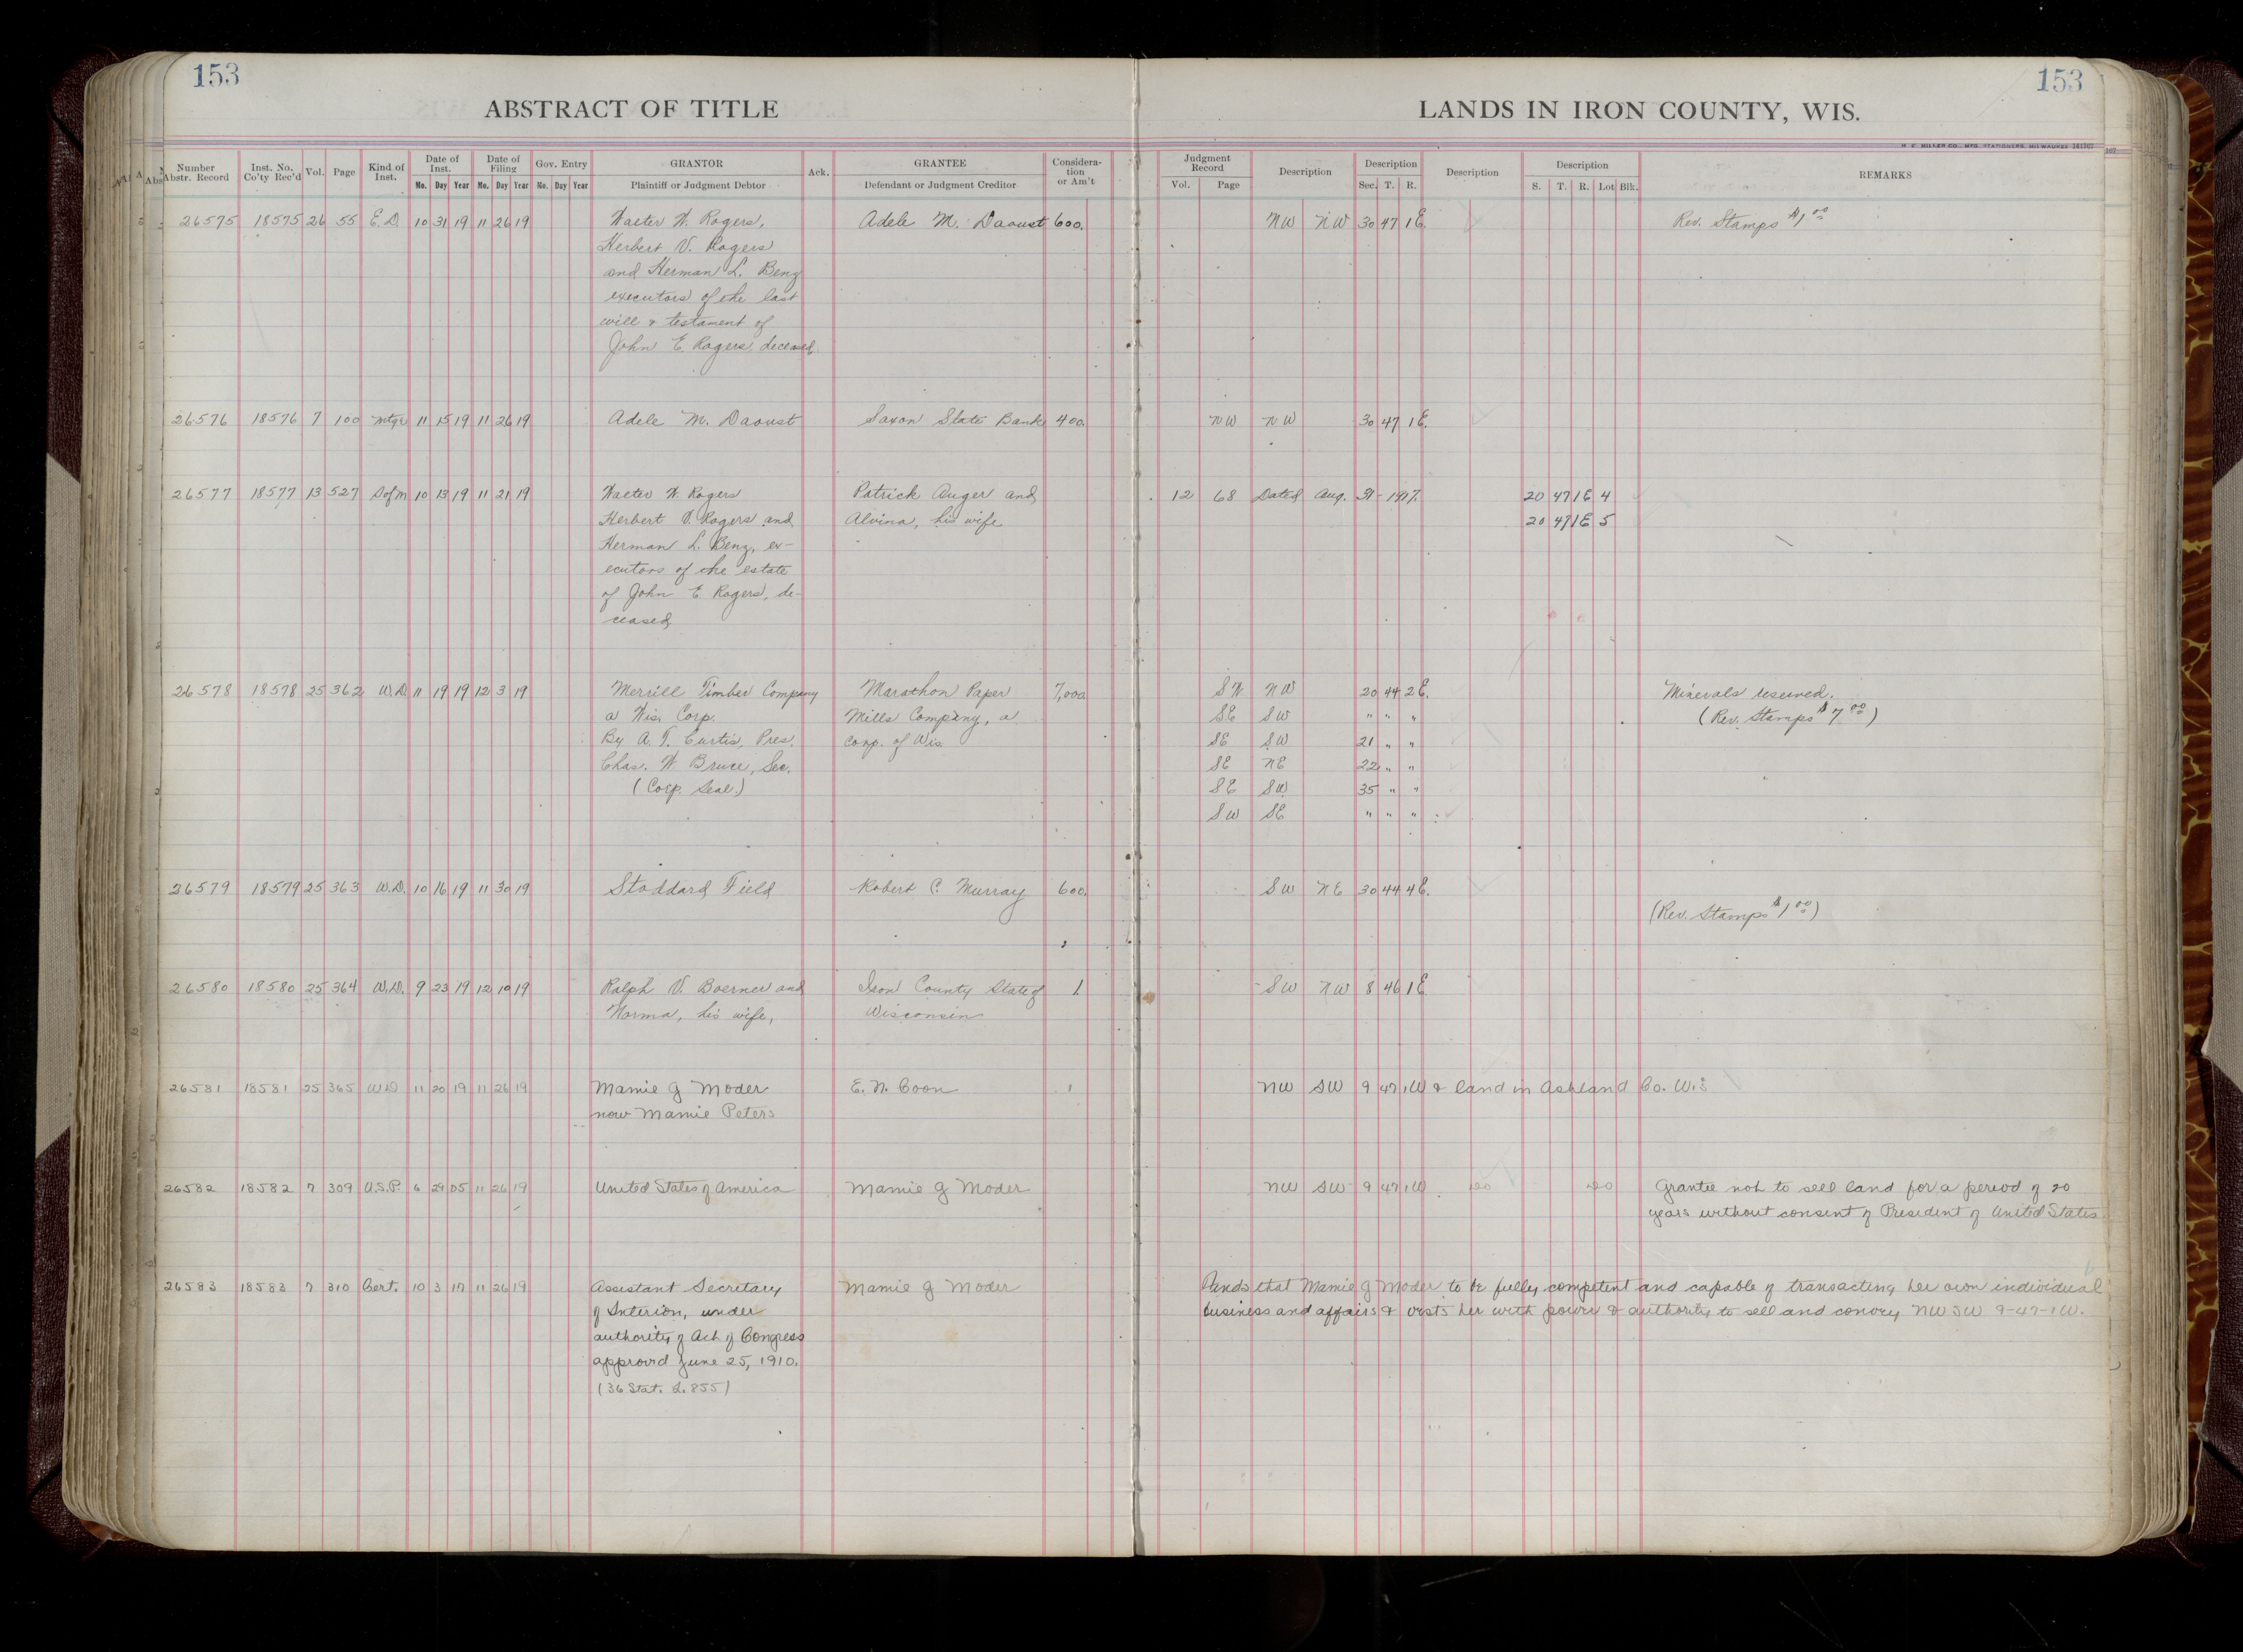 153
153
ABSTRACT OF TITLE
LANDS IN IRON COUNTY, WIS.
Number Abstr. Record Inst. No. Co'ty Rec'd Vol. Page Kind of Inst. Date of Inst. Mo. Day Year Date of Filing Mo. Day Year Gov. Entry Mo. Day Year GRANTOR Plaintiff or Judgment Debtor Ack. GRANTEE Defendant or Judgment Creditor Considera-tion or Am't Judgment Record Vol. Page Description Description Sec. T. R. Description Description S. T. R. Lot Blk. REMARKS
26575 18575 26 55 E. D. 10 31 19 11 26 19 Walter W. Rogers, Adele M. Daoust 600. NW NW 30 47 1 E. Rev. Stamps $1.00
Herbert V. Rogers
and Herman L. Benz
executors of the last
will & testament of
John E. Rogers, deceased.
26576 18576 7 100 Mtge 11 15 19 11 26 19 Adele M. Daoust Saxon State Bank 400. NW NW 30 47 1 E.
26577 18577 13 527 S of M 10 13 19 11 21 19 Walter W. Rogers Patrick Auger and 12 68 Dated Aug. 31 - 1917. 20 47 1 E 4
Herbert V. Rogers and Alvina, his wife 20 47 1 E 5
Herman L. Benz, ex-
ecutors of the estate
of John E. Rogers, de-
ceased
26578 18578 25 362 W.D 11 19 19 12 3 19 Merrill Timber Company Marathon Paper 7,000 SW NW 20 44 2 E. Minerals reserved.
a Wis. Corp. Mills Company, a SE SW " " " (Rev. Stamps $7.00)
By A. T. Curtis, Pres. corp. of Wis. SE SW 21 " "
Chas. W. Bruce, Sec. SE NE 22 " "
(Corp. Seal.) SE SW 35 " "
SW SE " " "
26579 18579 25 363 W.D. 10 16 19 11 30 19 Stoddard Field Robert C. Murray 600. SW NE 30 44 4 E.
(Rev. Stamps $1.00)
26580 18580 25 364 W.D. 9 23 19 12 10 19 Ralph V. Boerner and Iron County State of 1. SW NW 8 46 1 E
Norma, his wife, Wisconsin
26581 18581 25 365 W D 11 20 19 11 26 19 Mamie G Moder E. N. Coon 1 NW SW 9 47 1 W & land in Ashland Co. Wis
now Mamie Peters
26582 18582 7 309 U.S.P. 6 29 05 11 26 19 United States of America Mamie G Moder NW SW 9 47 1 W do do Grantee not to sell land for a period of 20
years without consent of President of United States
26583 18583 7 310 Cert. 10 3 17 11 26 19 Assistant Secretary Mamie G Moder Finds that Mamie G Moder to be fully competent and capable of transacting her own individual
of Interior, under business and affairs & vests her with power & authority to sell and convey NW SW 9-47-1 W.
authority of Act of Congress
approved June 25, 1910.
(36 Stat. L. 855)